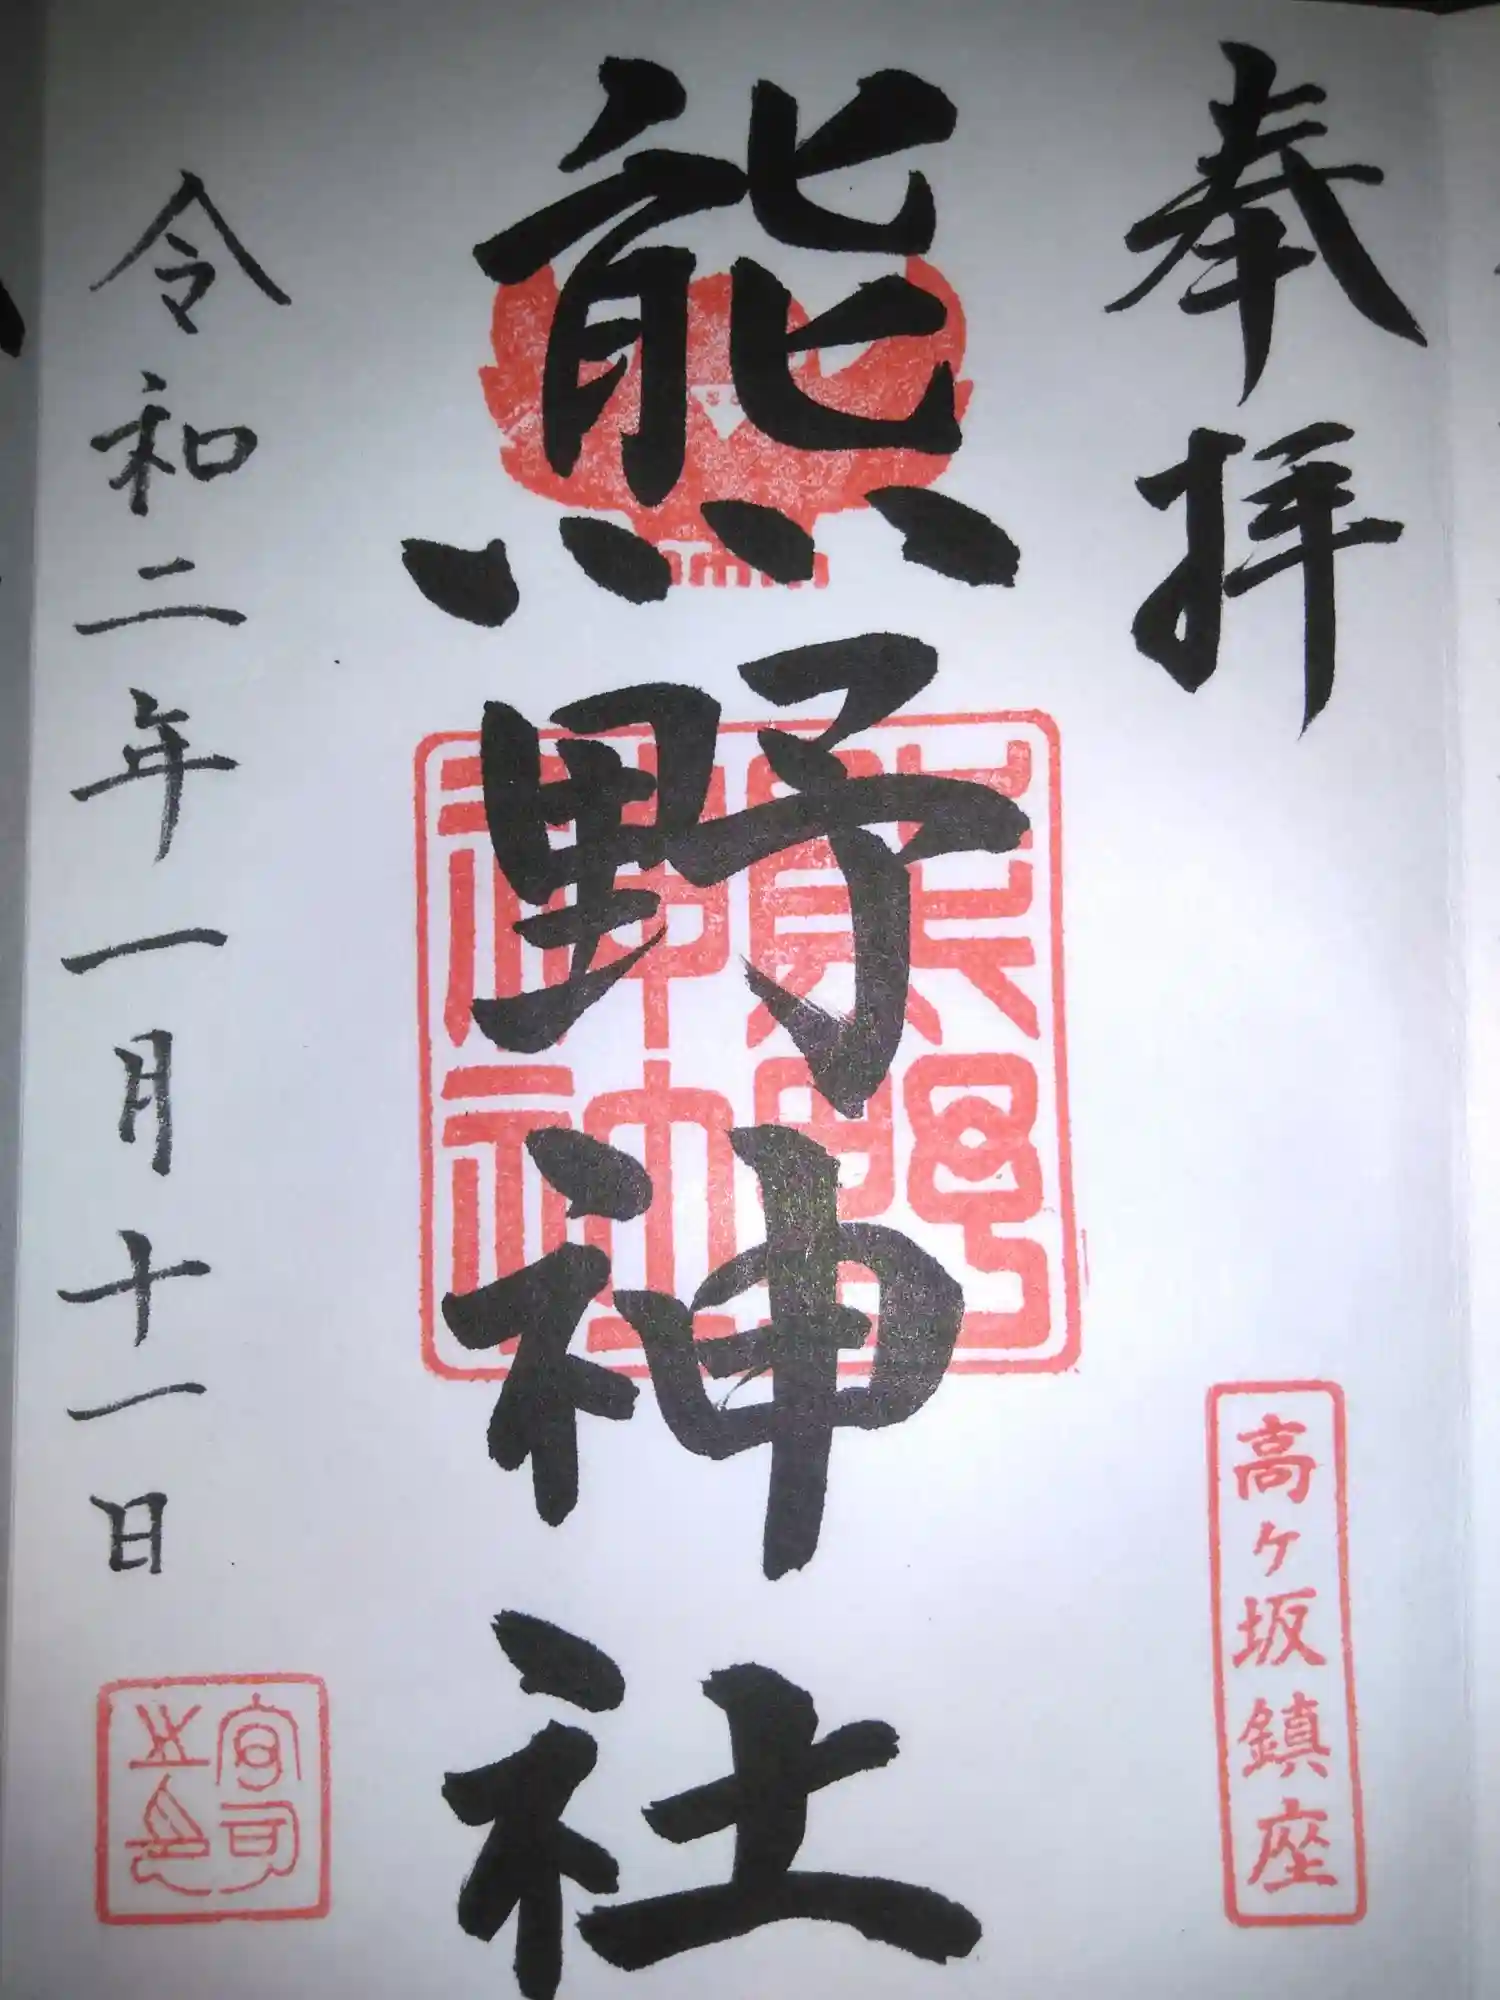 奉拝
高ヶ坂鎮座
熊野神社
熊野
神社
令和二年一月十一日
宮司
之印